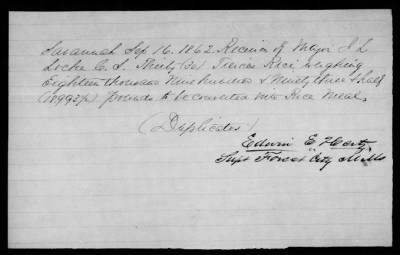 Savannah Sep 16. 1862. Received of Major J L
Locke C. S. Thirty (30) Tierces Rice weighing
Eighteen thousand Nine hundred & Ninety three & half
(18993½) pounds to be converted into Rice Meal.
(Duplicates)
Edwin E Hertz,
Supt Forest City Mills